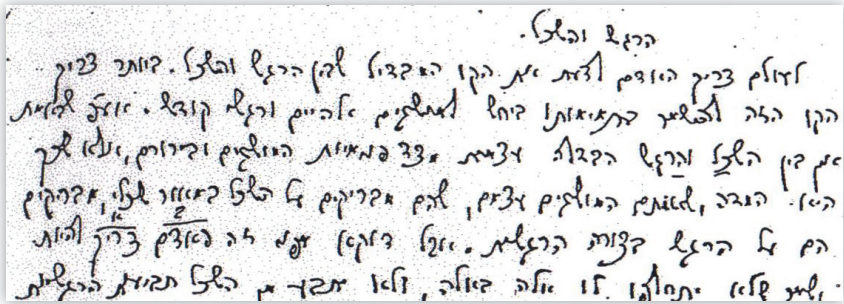 הרגש והשכל.
לעולם צריך האדם לדעת את הקו המבדיל שבין הרגש והשכל. ביותר צריך
הקו הזה להשמר בתמימותו ביחש למושגים אלהיים ורגשי קודש. ואע״פ שבאמת
אין בין השכל והרגש הבדלה עצמית מצד פנמיות המושגים ובירורם, אלא שכך
היא המדה, שאותם המושגים עצמם, שהם מבריקים על השכל במאור שכלי, מבריקים
הם על הרגש בצורה הרגשית. אבל דוקא עפ״ז זה האדם צריך להיות
שלא יתחלפו לו אלה באלה, ולא יתבע מן השכל תביעות הרגשיות